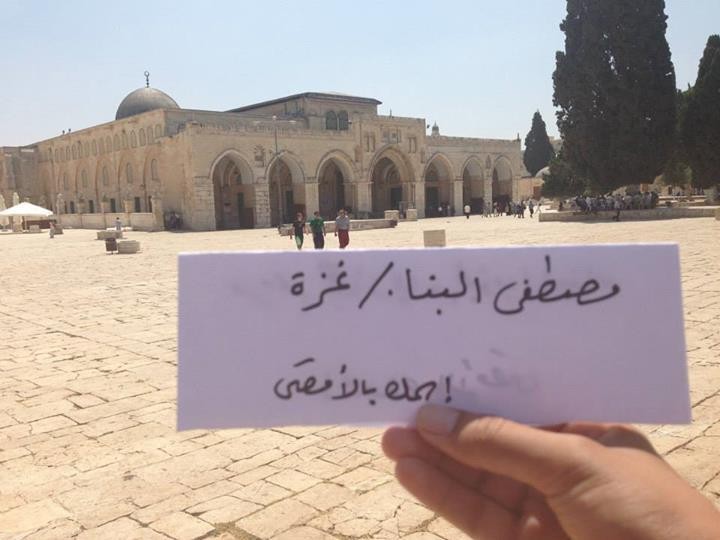 مصطفى البنا ./ غزة
إسمك بالأقصى